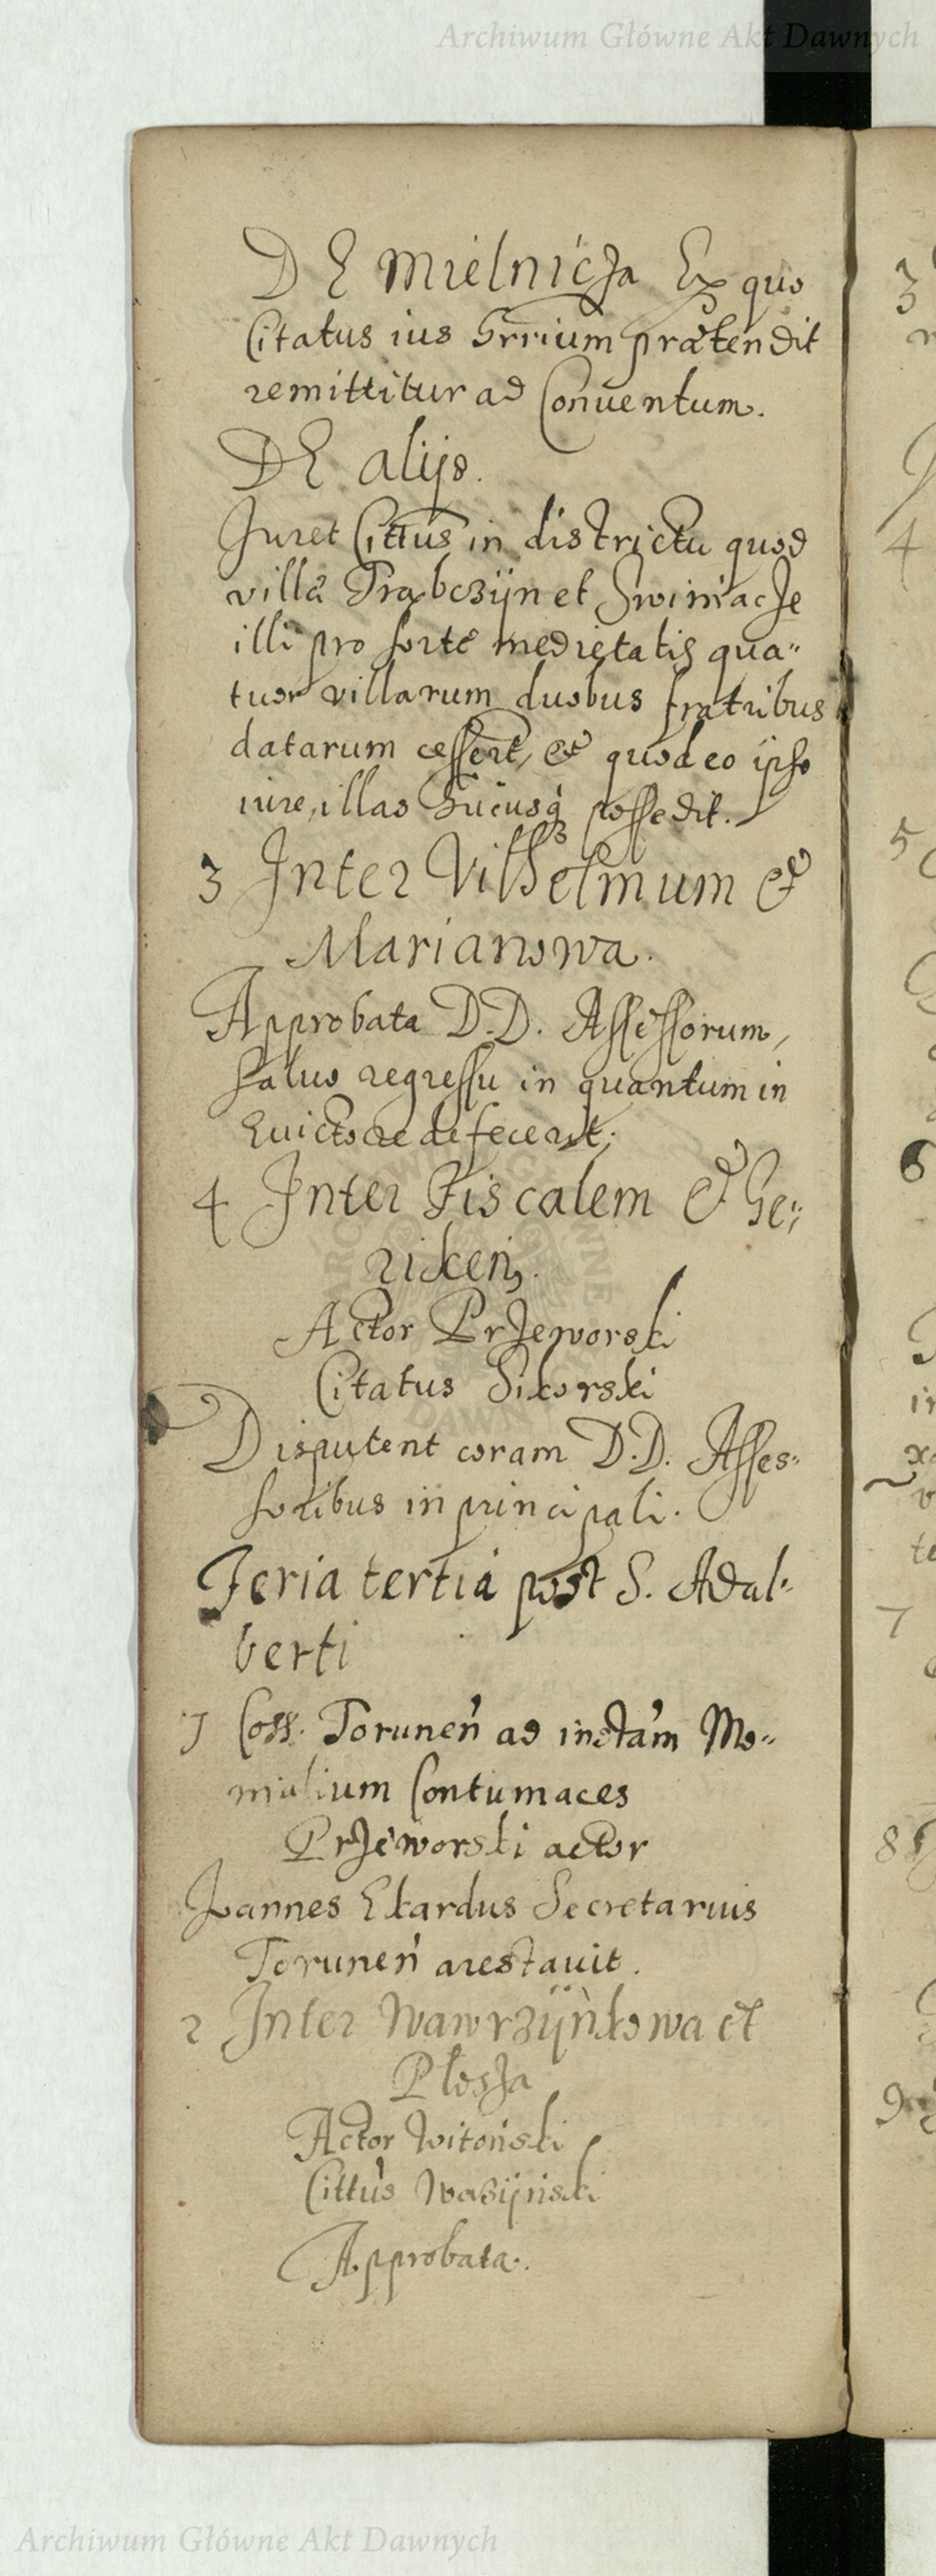 Archiwum Główne Akt Dawnych
DE Mielnicza Ex quo
Citatus ius Hrrium prætendit
remittitur ad Conuentum.
DE alijs.
Juret Cittus in districtu quod
villa Trąbczijn et Swiniacze
illi pro sorte medietatis qua"
tuor villarum duobus fratribus
datarum cessert, et quod eo ipso
iure, illas hucusq possedit.
3 Inter Vilhelmum &
Marianowa.
Approbata D.D. Assessorum,
saluo regressu in quantum in
Euictore defecerit;
4 Inter Fiscalem & Ge"
riken,
Actor Przeworski
Citatus Sikorski
Disputent coram D.D. Asses"
soribus in principali.
Feria tertia post S. Adal"
berti
1 Coss. Toruneń ad instam Mo"
nialium Contumaces
Przeworski actor
Joannes Ekardus Secretarius
Toruneń arestauit.
2 Inter Wawrzijnkowa et
Plosza
Actor Witoński
Cittus Wasijnski
Approbata.
Archiwum Główne Akt Dawnych